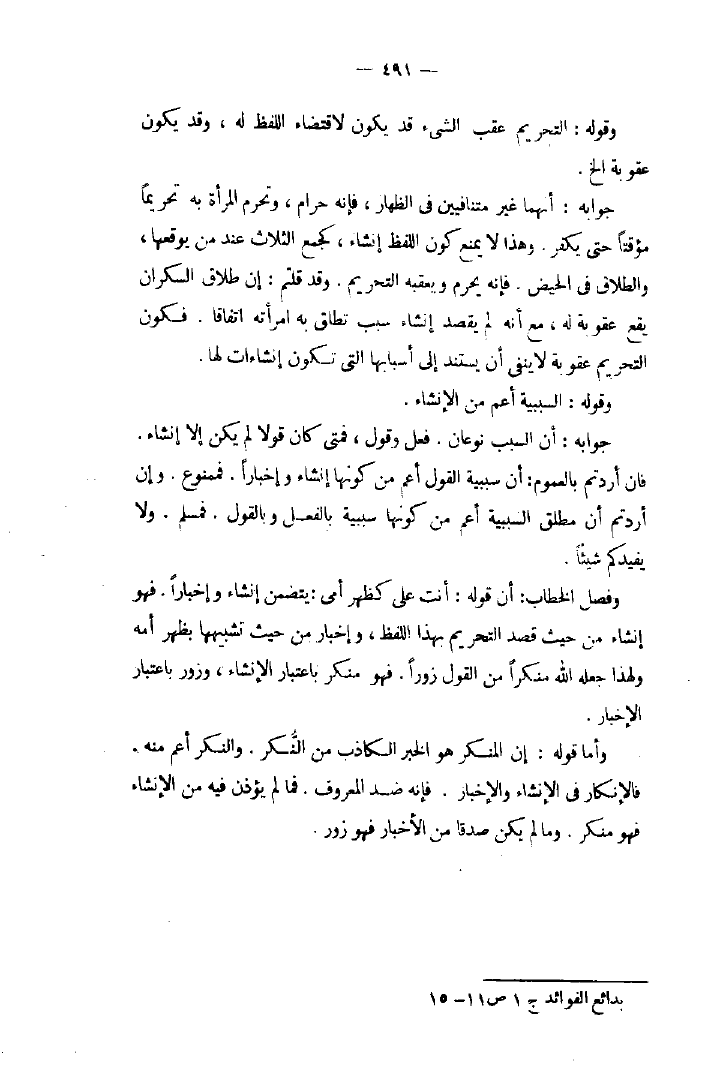 — ٤٩١ —
وقوله : التحريم عقب الشىء قد يكون لاقتضاء اللفظ له ، وقد يكون
عقوبة الخ .
جوابه : أنهما غير متنافيين فى الظهار ، فإنه حرام ، وتحرم المرأة به تحريماً
مؤقتاً حتى يكفر . وهذا لا يمنع كون اللفظ إنشاء ، كجمع الثلاث عند من يوقعها ،
والطلاق فى الحيض . فإنه يحرم ويعقبه التحريم . وقد قلتم : إن طلاق السكران
يقع عقوبة له ، مع أنه لم يقصد إنشاء سبب تطلق به امرأته اتفاقا . فكون
التحريم عقوبة لا ينفى أن يستند إلى أسبابها التى تكون إنشاءات لها .
وقوله : السببية أعم من الإنشاء .
جوابه : أن السبب نوعان . فعل وقول ، فمتى كان قولا لم يكن إلا إنشاء .
فان أردتم بالعموم : أن سببية القول أعم من كونها إنشاء وإخباراً . فممنوع . وإن
أردتم أن مطلق السببية أعم من كونها سببية بالفعل وبالقول . فمسلم . ولا
يفيدكم شيئاً .
وفصل الخطاب : أن قوله : أنت على كظهر أمى : يتضمن إنشاء وإخباراً . فهو
إنشاء من حيث قصد التحريم بهذا اللفظ ، وإخبار من حيث تشبيهها بظهر أمه
ولهذا جعله الله منكراً من القول زوراً . فهو منكر باعتبار الإنشاء ، وزور باعتبار
الإخبار .
وأما قوله : إن المنكر هو الخبر الكاذب من النُّكر . والنكر أعم منه .
فالإنكار فى الإنشاء والإخبار . فإنه ضد المعروف . فما لم يؤذن فيه من الإنشاء
فهو منكر . وما لم يكن صدقا من الأخبار فهو زور .
بدائع الفوائد ج ١ ص ١١ – ١٥